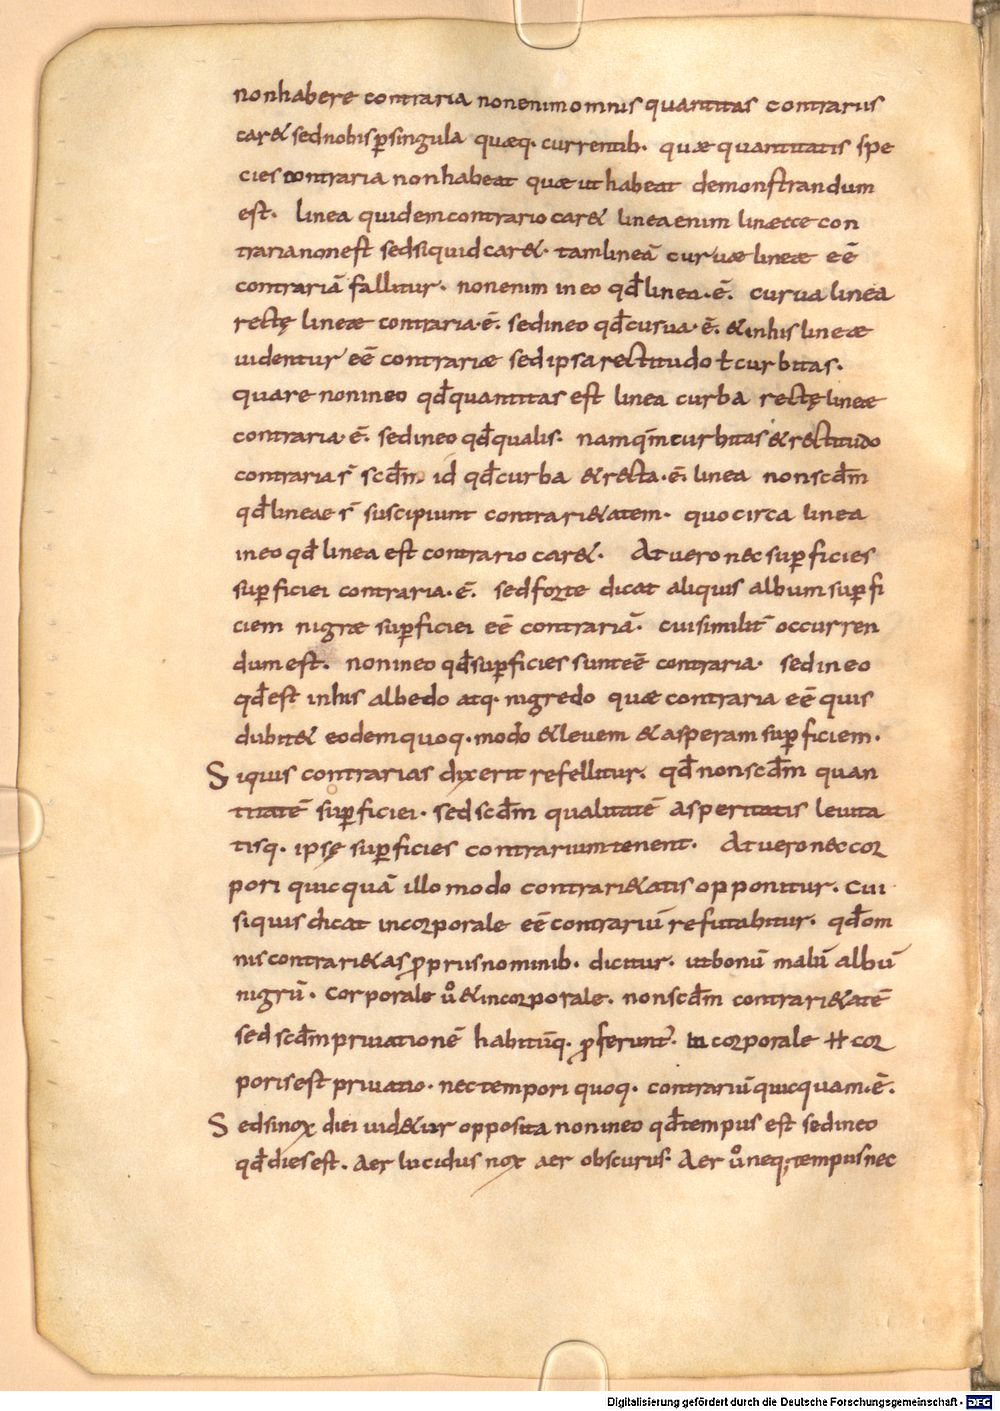 non habere contraria non enim omnis quantitas contrariis
car& sed nobis ꝑ singula quæq· currentib· quæ quantitatis spe
cies contraria non habeat quæ ut habeat demonstrandum
est· linea quidem contrario car& linea enim lineæ con
traria non est sed siquid car&· tam lineā curuæ lineæ eē
contrariā fallitur· non enim in eo qđ linea·ē· curua linea
rectę lineæ contraria·ē· sed in eo qđ curua·ē· & in his lineæ
uidentur eē contrariæ sed ipsa rectitudo ł curbitas·
quare non in eo qđ quantitas est linea curba rectę lineæ
contraria·ē· sed in eo qđ qualis· namq̄m curbitas & rectitudo
contraria s̄ scđm id qđ curba & recta·ē· linea non scđm
qđ lineae s̄ suscipiunt contrari&atem· quo circa linea
in eo qđ linea est contrario car&· At uero nec suꝑficies
suꝑficiei contraria·ē· sed forte dicat aliquis album suꝑfi
ciem nigræ suꝑficiei eē contrariā· cui similit̄ occurren
dum est· non in eo qđ suꝑficies sunt eē contraria· sed in eo
qđ est in his albedo atq· nigredo quæ contraria eē quis
dubit& eodem quoq· modo & leuem & asperam suꝑficiem·
Siquis contrarias dixerit refellitur· qđ non scđm quan
titatē suꝑficiei· sed scđm qualitatē asperitatis leuita
tisq· ipsę suꝑficies contrarium tenent· At uero nec cor
pori quicquā illo modo contrari&atis opponitur· Cui
siquis dicat incorporale eē contrariū refutabitur· qđ om
nis contrari&as ꝓpriis nominib· dicitur· ut bonū malū albū
nigrū· Corporale ů & incorporale· non scđm contrari&atē
sed scđm priuationē habitūq· ꝓferunt̄· incorporale ǂ cor
poris est priuatio· nec tempori quoq· contrariū quicquam·ē·
Sed si nox diei uid&ur opposita non in eo qđ tempus est sed in eo
qđ dies est· Aer lucidus nox aer obscurus· Aer ů neq; tempus nec
Digitalisierung gefördert durch die Deutsche Forschungsgemeinschaft - DFG